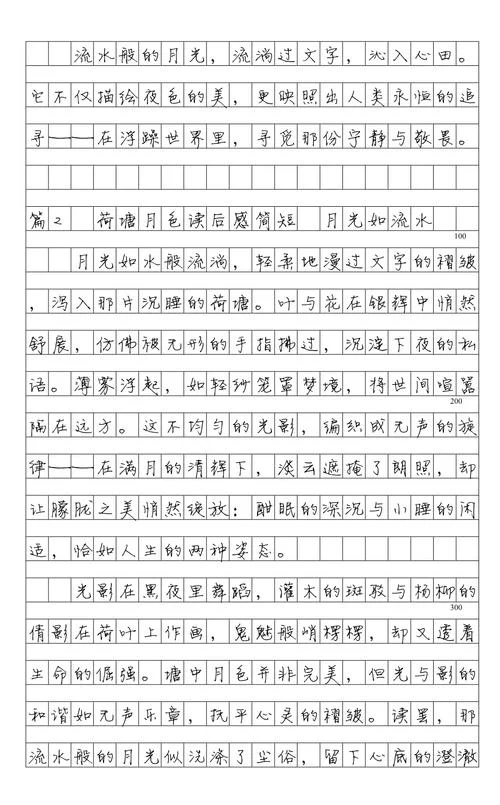 流水般的月光，流淌过文字，沁入心田。
它不仅描绘夜色的美，更映照出人类永恒的追
寻——在浮躁世界里，寻觅那份宁静与敬畏。
篇2 荷塘月色读后感简短 月光如流水
100
月光如水般流淌，轻柔地漫过文字的褶皱
，泻入那片沉睡的荷塘。叶与花在银辉中悄然
舒展，仿佛被无形的手指拂过，沉淀下夜的私
语。薄雾浮起，如轻纱笼罩梦境，将世间喧嚣
200
隔在远方。这不均匀的光影，编织成无声的旋
律——在满月的清辉下，淡云遮掩了朗照，却
让朦胧之美悄然绽放：酣眠的深沉与小睡的闲
适，恰如人生的两种姿态。
光影在黑夜里舞蹈，灌木的斑驳与杨柳的
300
倩影在荷叶上作画，鬼魅般峭楞楞，却又透着
生命的倔强。塘中月色并非完美，但光与影的
和谐如无声乐章，抚平心灵的褶皱。读罢，那
流水般的月光似洗涤了尘俗，留下心底的澄澈